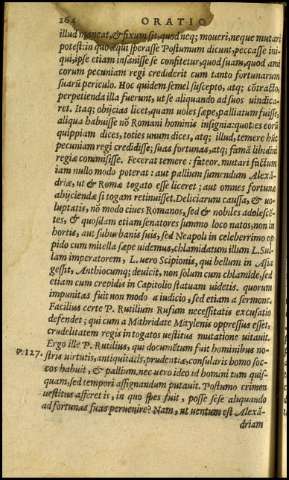 264 ORATIO
illud maneat, & fixum sit, quod neq; moueri, neque mutari
potest: in quo æqui sperasse Postumum dicunt, peccasse ini-
qui, ipse etiam insanisse se confitetur, quod suam, quod ami
corum pecuniam regi crediderit cum tanto fortunarum
suarũ periculo. Hoc quidem semel suscepto, atq; cõtracto
perpetienda illa fuerunt, ut se aliquando ad suos uindica
ret. Itaq; obijcias licet, quam uoles sæpe, palliatum fuisse,
aliqua habuisse nõ Romani hominis insignia: quoties eorũ
quippiam dices, toties unum dices, atq; illud, temere hũc
pecuniam regi credidisse; suas fortunas, atq; famã libidini
regiæ commisisse. Fecerat temere: fateor. mutari factum
iam nullo modo poterat: aut pallium sumendum Alexã-
driæ, ut ei Romæ togato esse liceret; aut omnes fortunæ
abijciendæ si togam retinuisset. Deliciarum caussa, & uo-
luptatis, nõ modo ciues Romanos, sed & nobiles adolescẽ-
tes, & quosdam etiam senatores summo loco natos, non in
hortis, aut suburbanis suis, sed Neapoli in celeberrimo op
pido cum mitella sæpe uidemus, chlamidatum illum L. Sul-
lam imperatorem, L. uero Scipionis, qui bellum in Asia
gessit, Anthiocumq; deuicit, non solum cum chlamide, sed
etiam cum crepidis in Capitolio statuam uidetis. quorum
impunitas fuit non modo a iudicio, sed etiam a sermone.
Facilius certe P. Rutilium Rufum necessitatis excusatio
defendet; qui cum a Mithridate Mitylenis oppressus esset,
crudelitatem regis in togatos uestitus mutatione uitauit.
Ergo ille P. Rutilius, qui documẽtum fuit hominibus no-
P. 127. stris uirtutis, antiquitatis, prudentiæ, consularis homo soc-
cos habuit, & pallium, nec uero ideo id homini tum quis-
quam, sed tempori assignandum putauit. Postumo crimen
uestitus afferet is, in quo spes fuit, posse sese aliquando
ad fortunas suas peruenire? Nam, ut uentum est Alexã-
driam